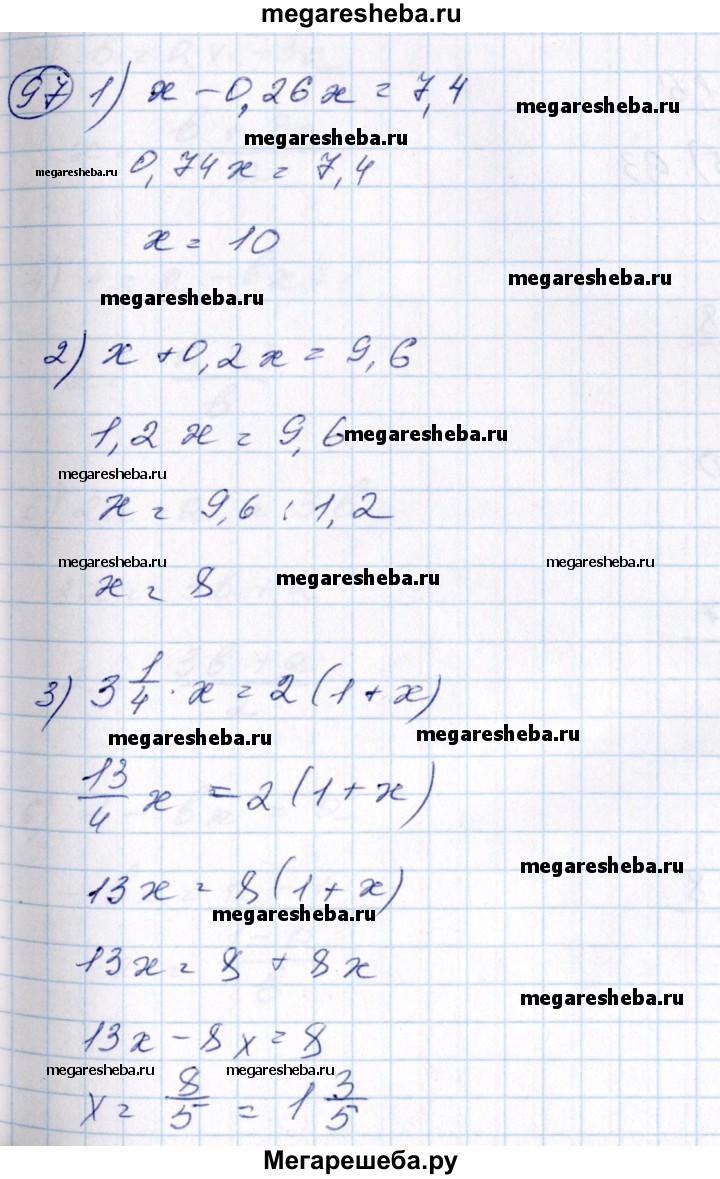 megaresheba.ru
97 1) x - 0,26x = 7,4
megaresheba.ru
megaresheba.ru
megaresheba.ru 0,74x = 7,4
x = 10
megaresheba.ru
megaresheba.ru
2) x + 0,2x = 9,6
1,2x = 9,6 megaresheba.ru
megaresheba.ru
x = 9,6 : 1,2
megaresheba.ru megaresheba.ru
x = 8 megaresheba.ru
3) 3 1/4 · x = 2(1 + x)
megaresheba.ru megaresheba.ru
13/4 x = 2(1 + x)
megaresheba.ru
13x = 8(1 + x)
megaresheba.ru
13x = 8 + 8x
megaresheba.ru
13x - 8x = 8
megaresheba.ru megaresheba.ru
x = 8/5 = 1 3/5
Мегарешеба.ру